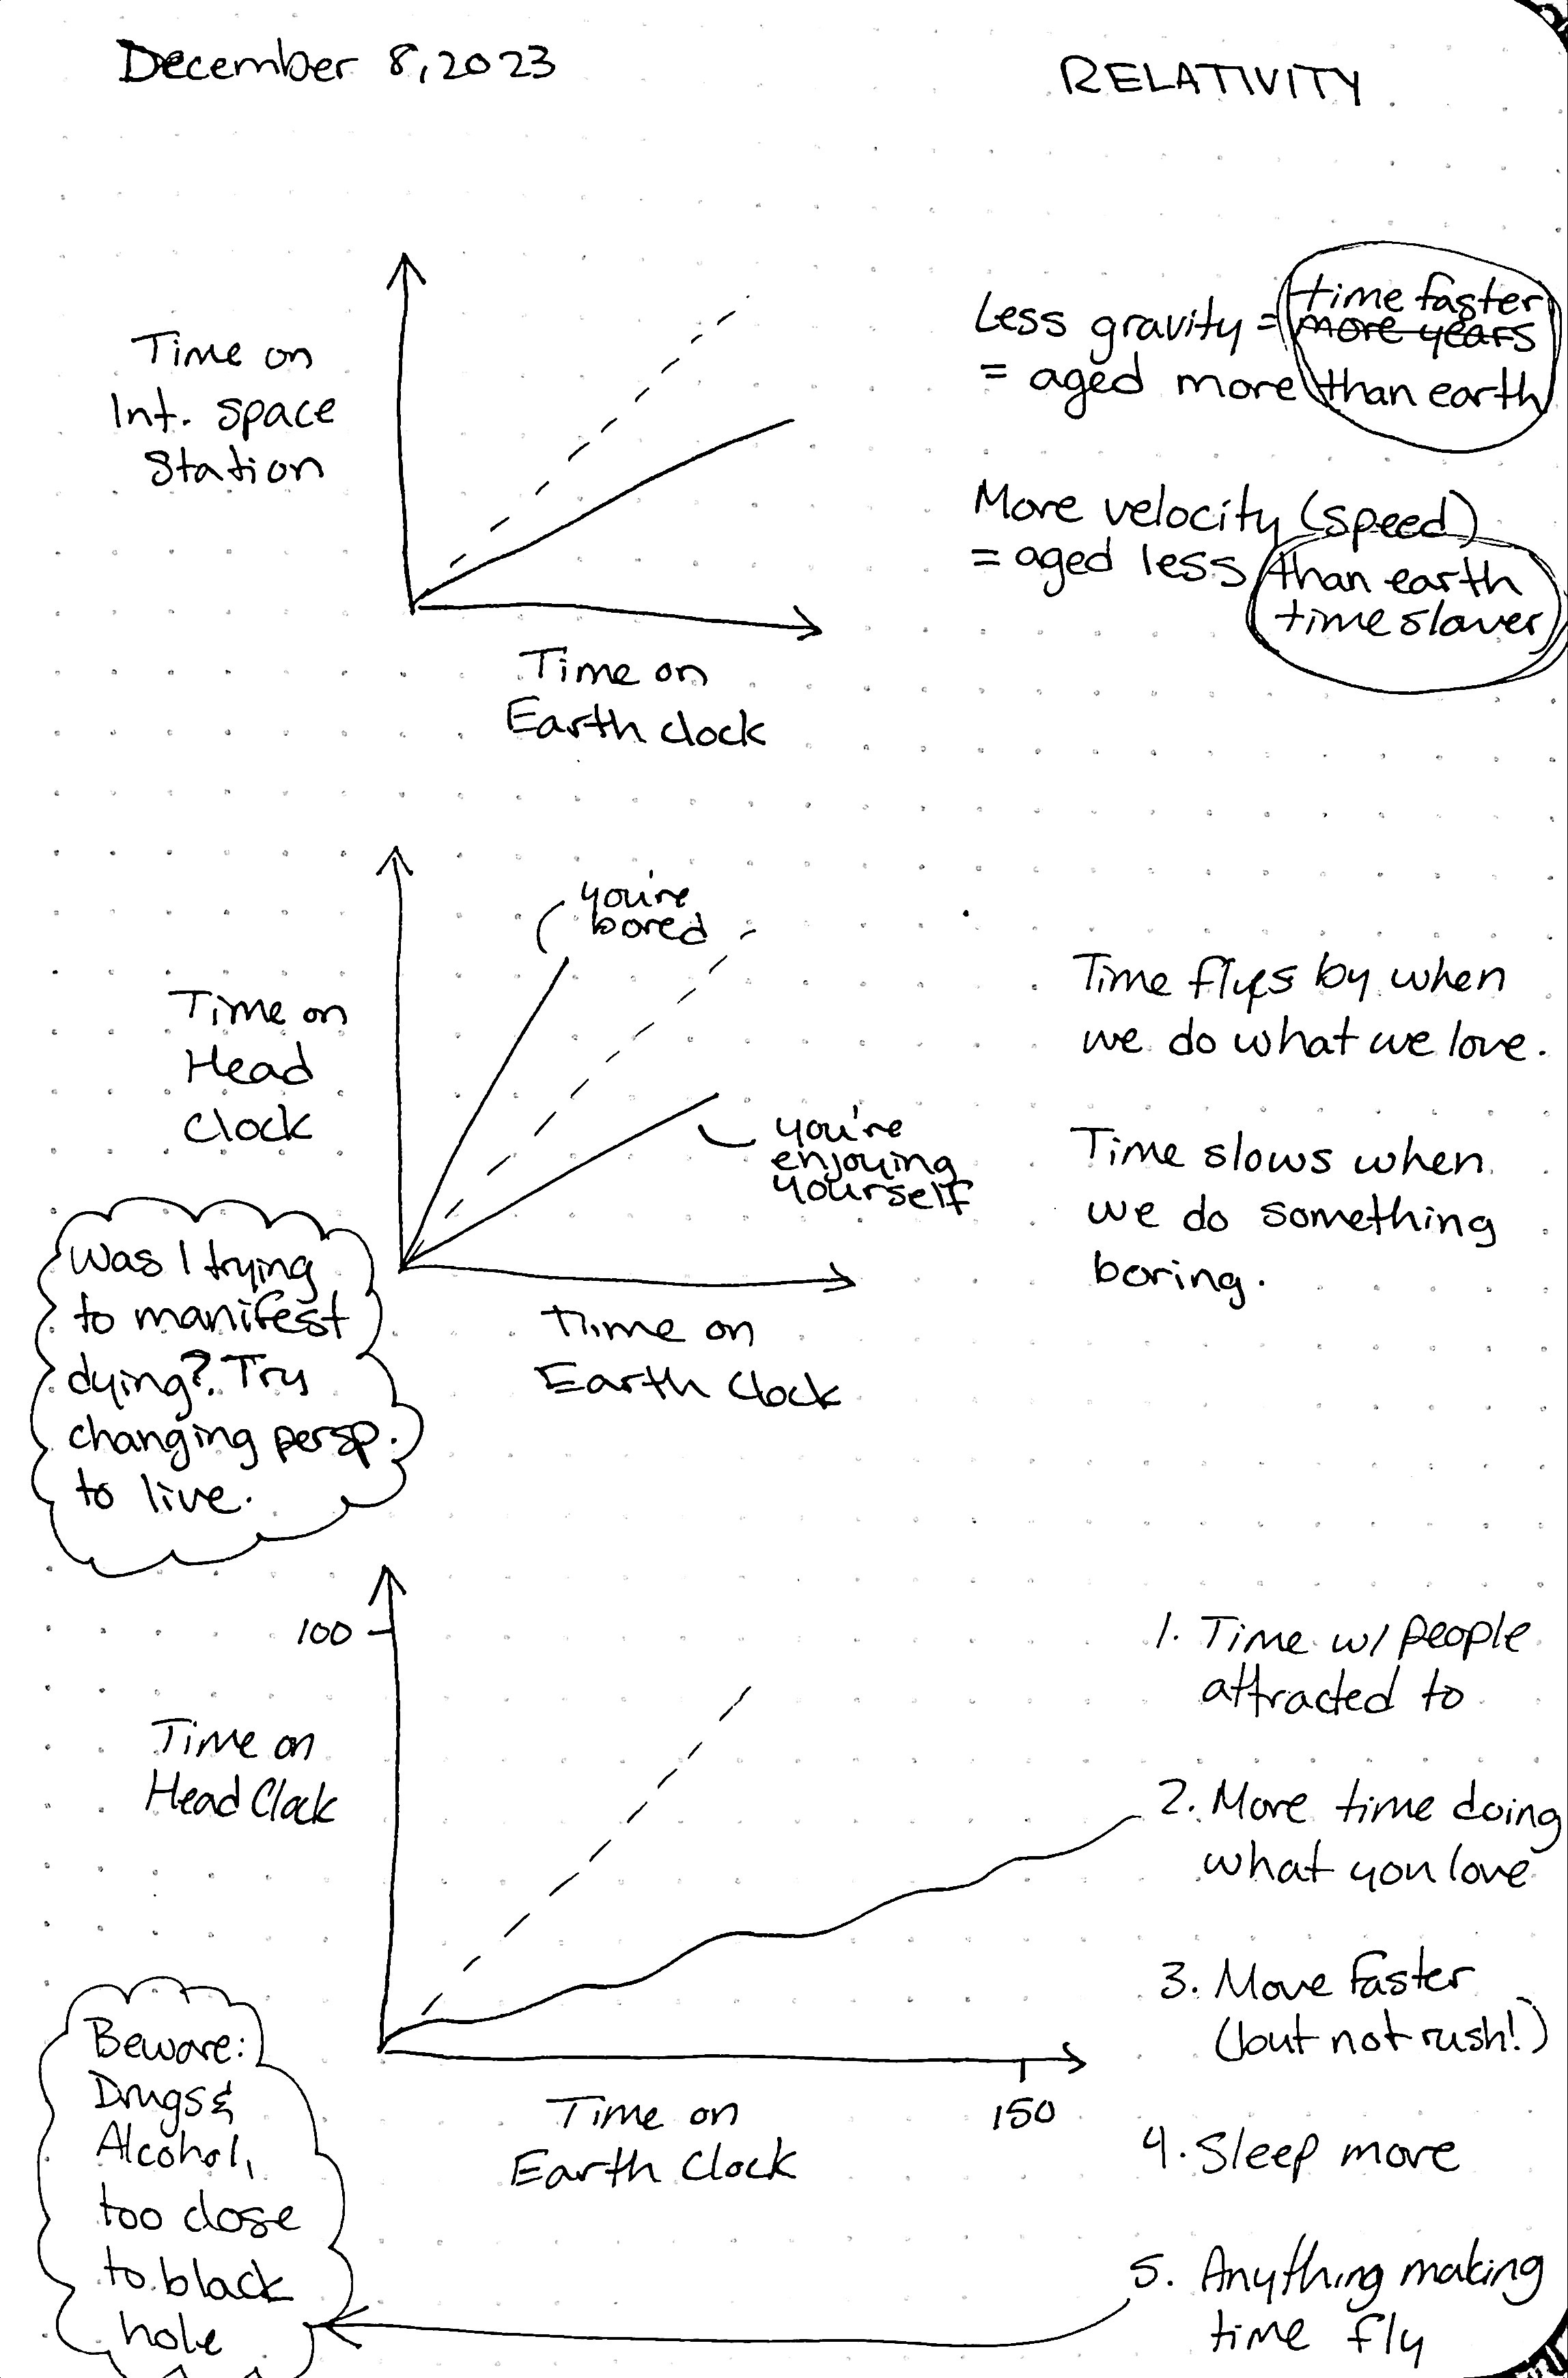 December 8, 2023
RELATIVITY
Time on
Int. space
Station
Time on
Earth clock
Less gravity = time faster
more years
= aged more than earth
More velocity (speed)
= aged less than earth
time slower
you're
bored
Time on
Head
Clock
you're
enjoying
yourself
Time on
Earth Clock
Time flys by when
we do what we love.
Time slows when
we do something
boring.
Was I trying
to manifest
dying? Try
changing persp.
to live.
100
Time on
Head Clock
150
Time on
Earth Clock
1. Time w/ people
attracted to
2. More time doing
what you love
3. Move faster
(but not rush!)
4. Sleep more
5. Anything making
time fly
Beware:
Drugs &
Alcohol,
too close
to black
hole